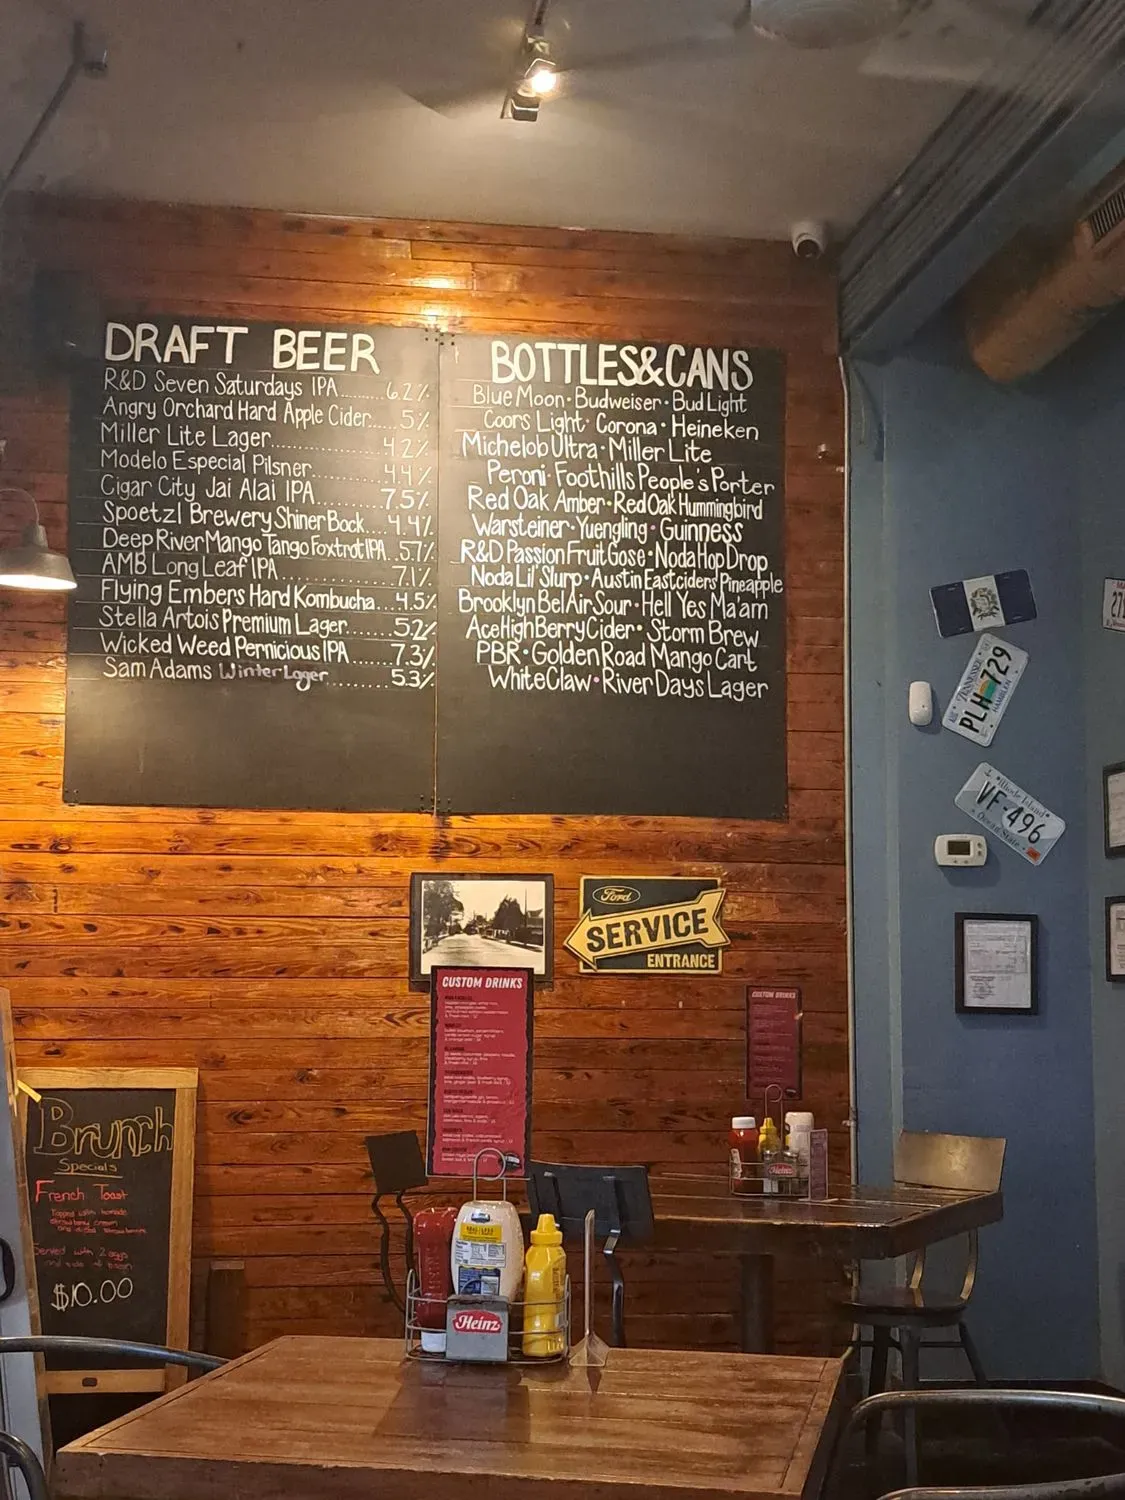 DRAFT BEER
R&D Seven Saturdays IPA.........6.2%
Angry Orchard Hard Apple Cider.....5%
Miller Lite Lager....................4.2%
Modelo Especial Pilsner.............4.4%
Cigar City Jai Alai IPA............7.5%
Spoetzl Brewery Shiner Bock....4.4%
Deep River Mango Tango Foxtrot IPA..5.7%
AMB Long Leaf IPA...................7.1%
Flying Embers Hard Kombucha....4.5%
Stella Artois Premium Lager.......5.2%
Wicked Weed Pernicious IPA.......7.3%
Sam Adams Winter Lager...........5.3%
BOTTLES&CANS
Blue Moon · Budweiser · Bud Light
Coors Light · Corona · Heineken
Michelob Ultra · Miller Lite
Peroni · Foothills People's Porter
Red Oak Amber · Red Oak Hummingbird
Warsteiner · Yuengling · Guinness
R&D Passion Fruit Gose · Noda Hop Drop
Noda Lil' Slurp · Austin Eastciders Pineapple
Brooklyn Bel Air Sour · Hell Yes Ma'am
Ace High Berry Cider · Storm Brew
PBR · Golden Road Mango Cart
White Claw · River Days Lager
TENNESSEE
PLH 729
HAMBLEN
Rhode Island
VF-496
Ocean State
Ford
SERVICE
ENTRANCE
CUSTOM DRINKS
CUSTOM DRINKS
Brunch
Specials
French Toast
Served with 2 eggs
$10.00
Heinz
Heinz